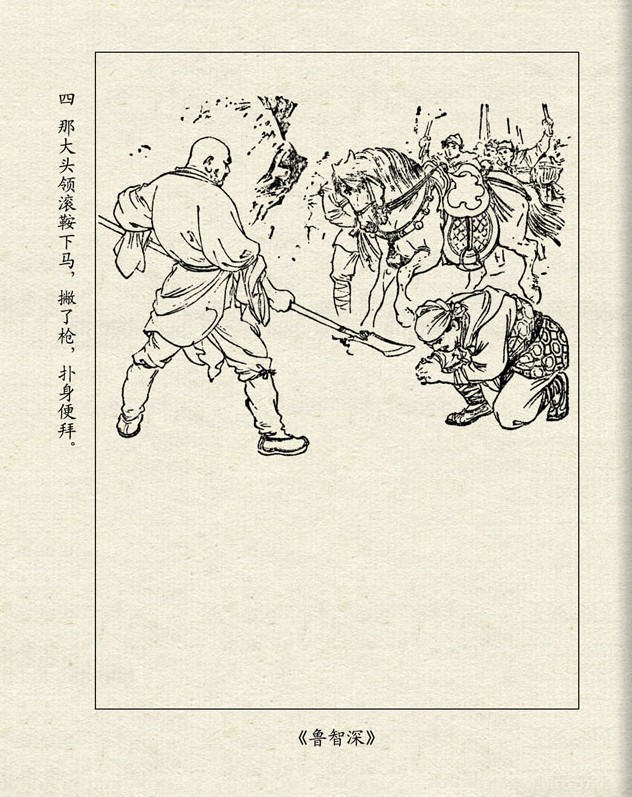 四 那大头领滚鞍下马，撇了枪，扑身便拜。
《鲁智深》